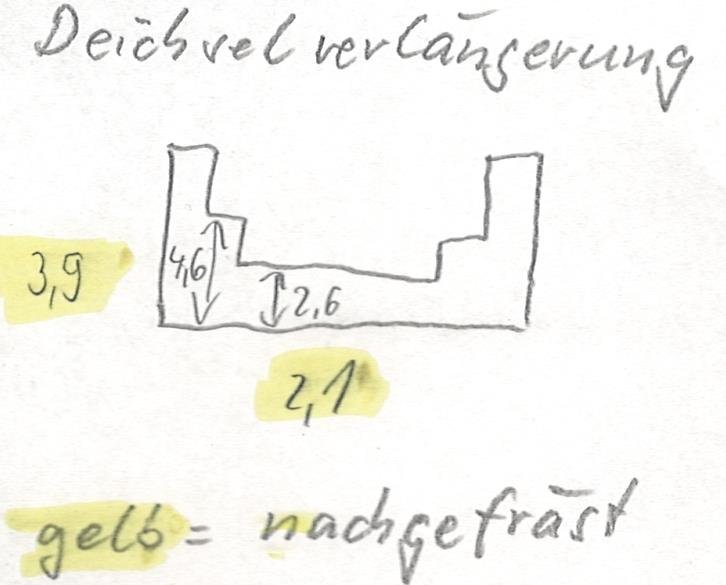 Deichselverlängerung
4,6
3,9
2,6
2,1
gelb = nachgefräst